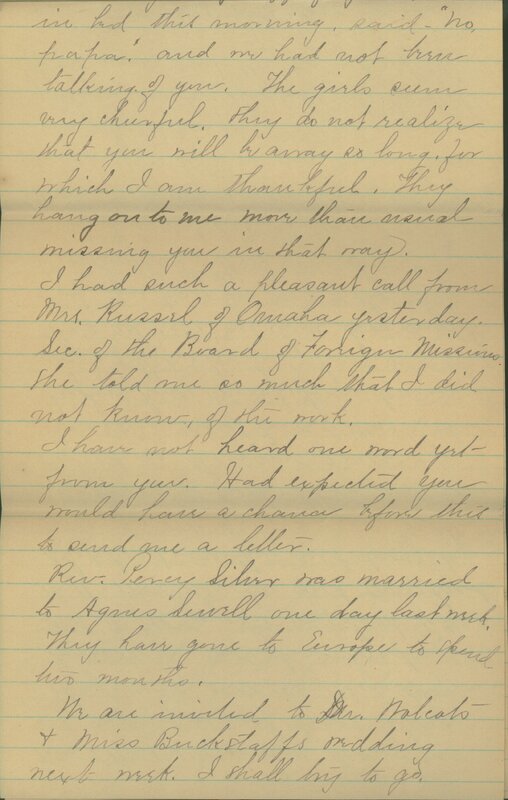 in bed this morning, said - "no,
papa". and we had not been
talking of you. The girls seem
very cheerful. They do not realize
that you will be away so long, for
which I am thankful. They
hang on to me more than usual
missing you in that way.
I had such a pleasant call from
Mrs. Russel of Omaha yesterday.
Sec. of the Board of Foreign Missions
She told me so much that I did
not know, of the work.
I have not heard one word yet
from you. Had expected you
would have a chance before this
to send me a letter.
Rev. Percy Silver was married
to Agnes Sewell one day last week.
They have gone to Europe to spend
two months.
We are invited to Dr. Wolcots
& Miss Buckstaffs wedding
next week. I shall try to go.